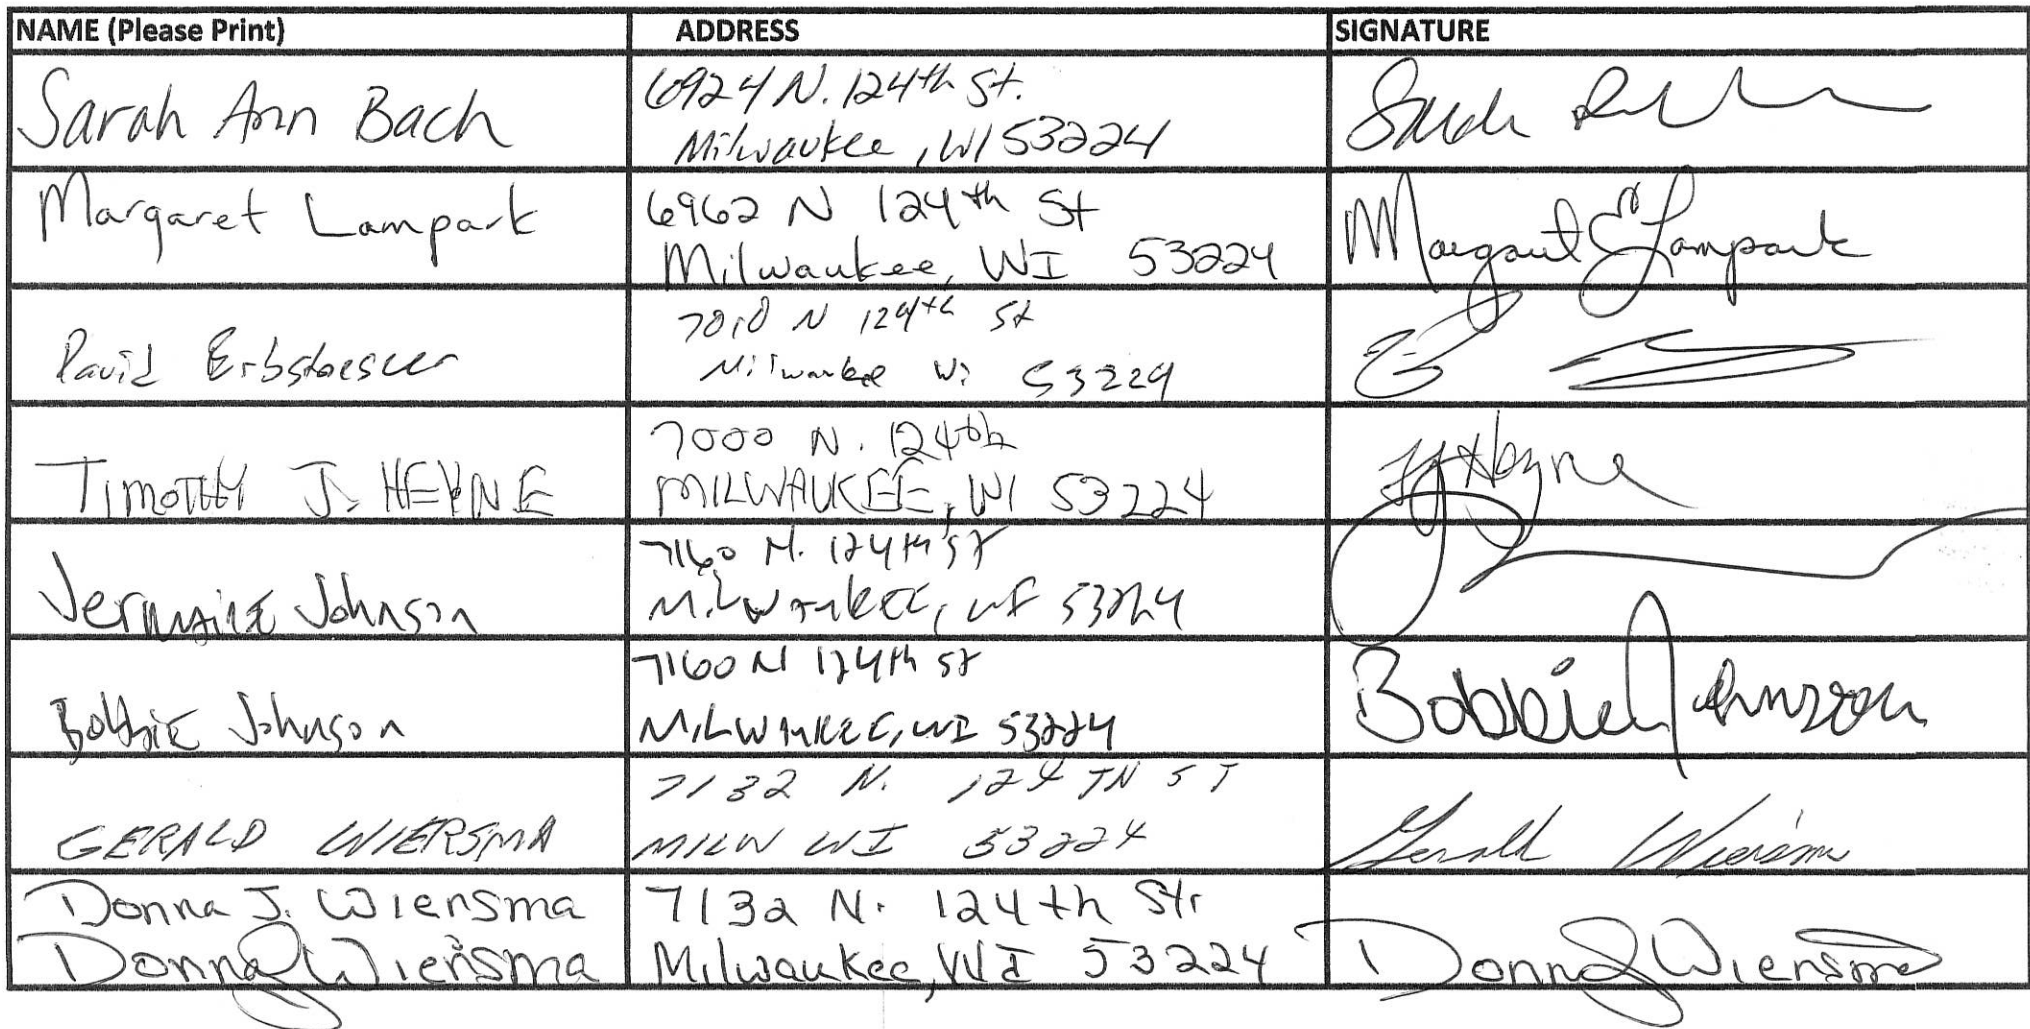 NAME (Please Print) ADDRESS SIGNATURE
Sarah Ann Bach
6924 N. 124th St.
Milwaukee, WI 53224
Margaret Lampark
6962 N 124th St
Milwaukee, WI 53224
Margaret E Lampark
David
N 124th St
Milwaukee Wi 53224
TIMOTHY J. HEYNE
7000 N. 124th
MILWAUKEE, WI 53224
Jermaine Johnson
7160 N. 124th ST
MILWAUKEE, WI 53224
Bobbie Johnson
7160 N 124th ST
MILWAUKEE, WI 53224
Bobbie Johnson
GERALD WIERSMA
7132 N. 124 TH ST
MILW WI 53224
Gerald Wiersma
Donna J. Wiersma
7132 N. 124th Str
Donna J Wiersma
Milwaukee, WI 53224
Donna J Wiersma